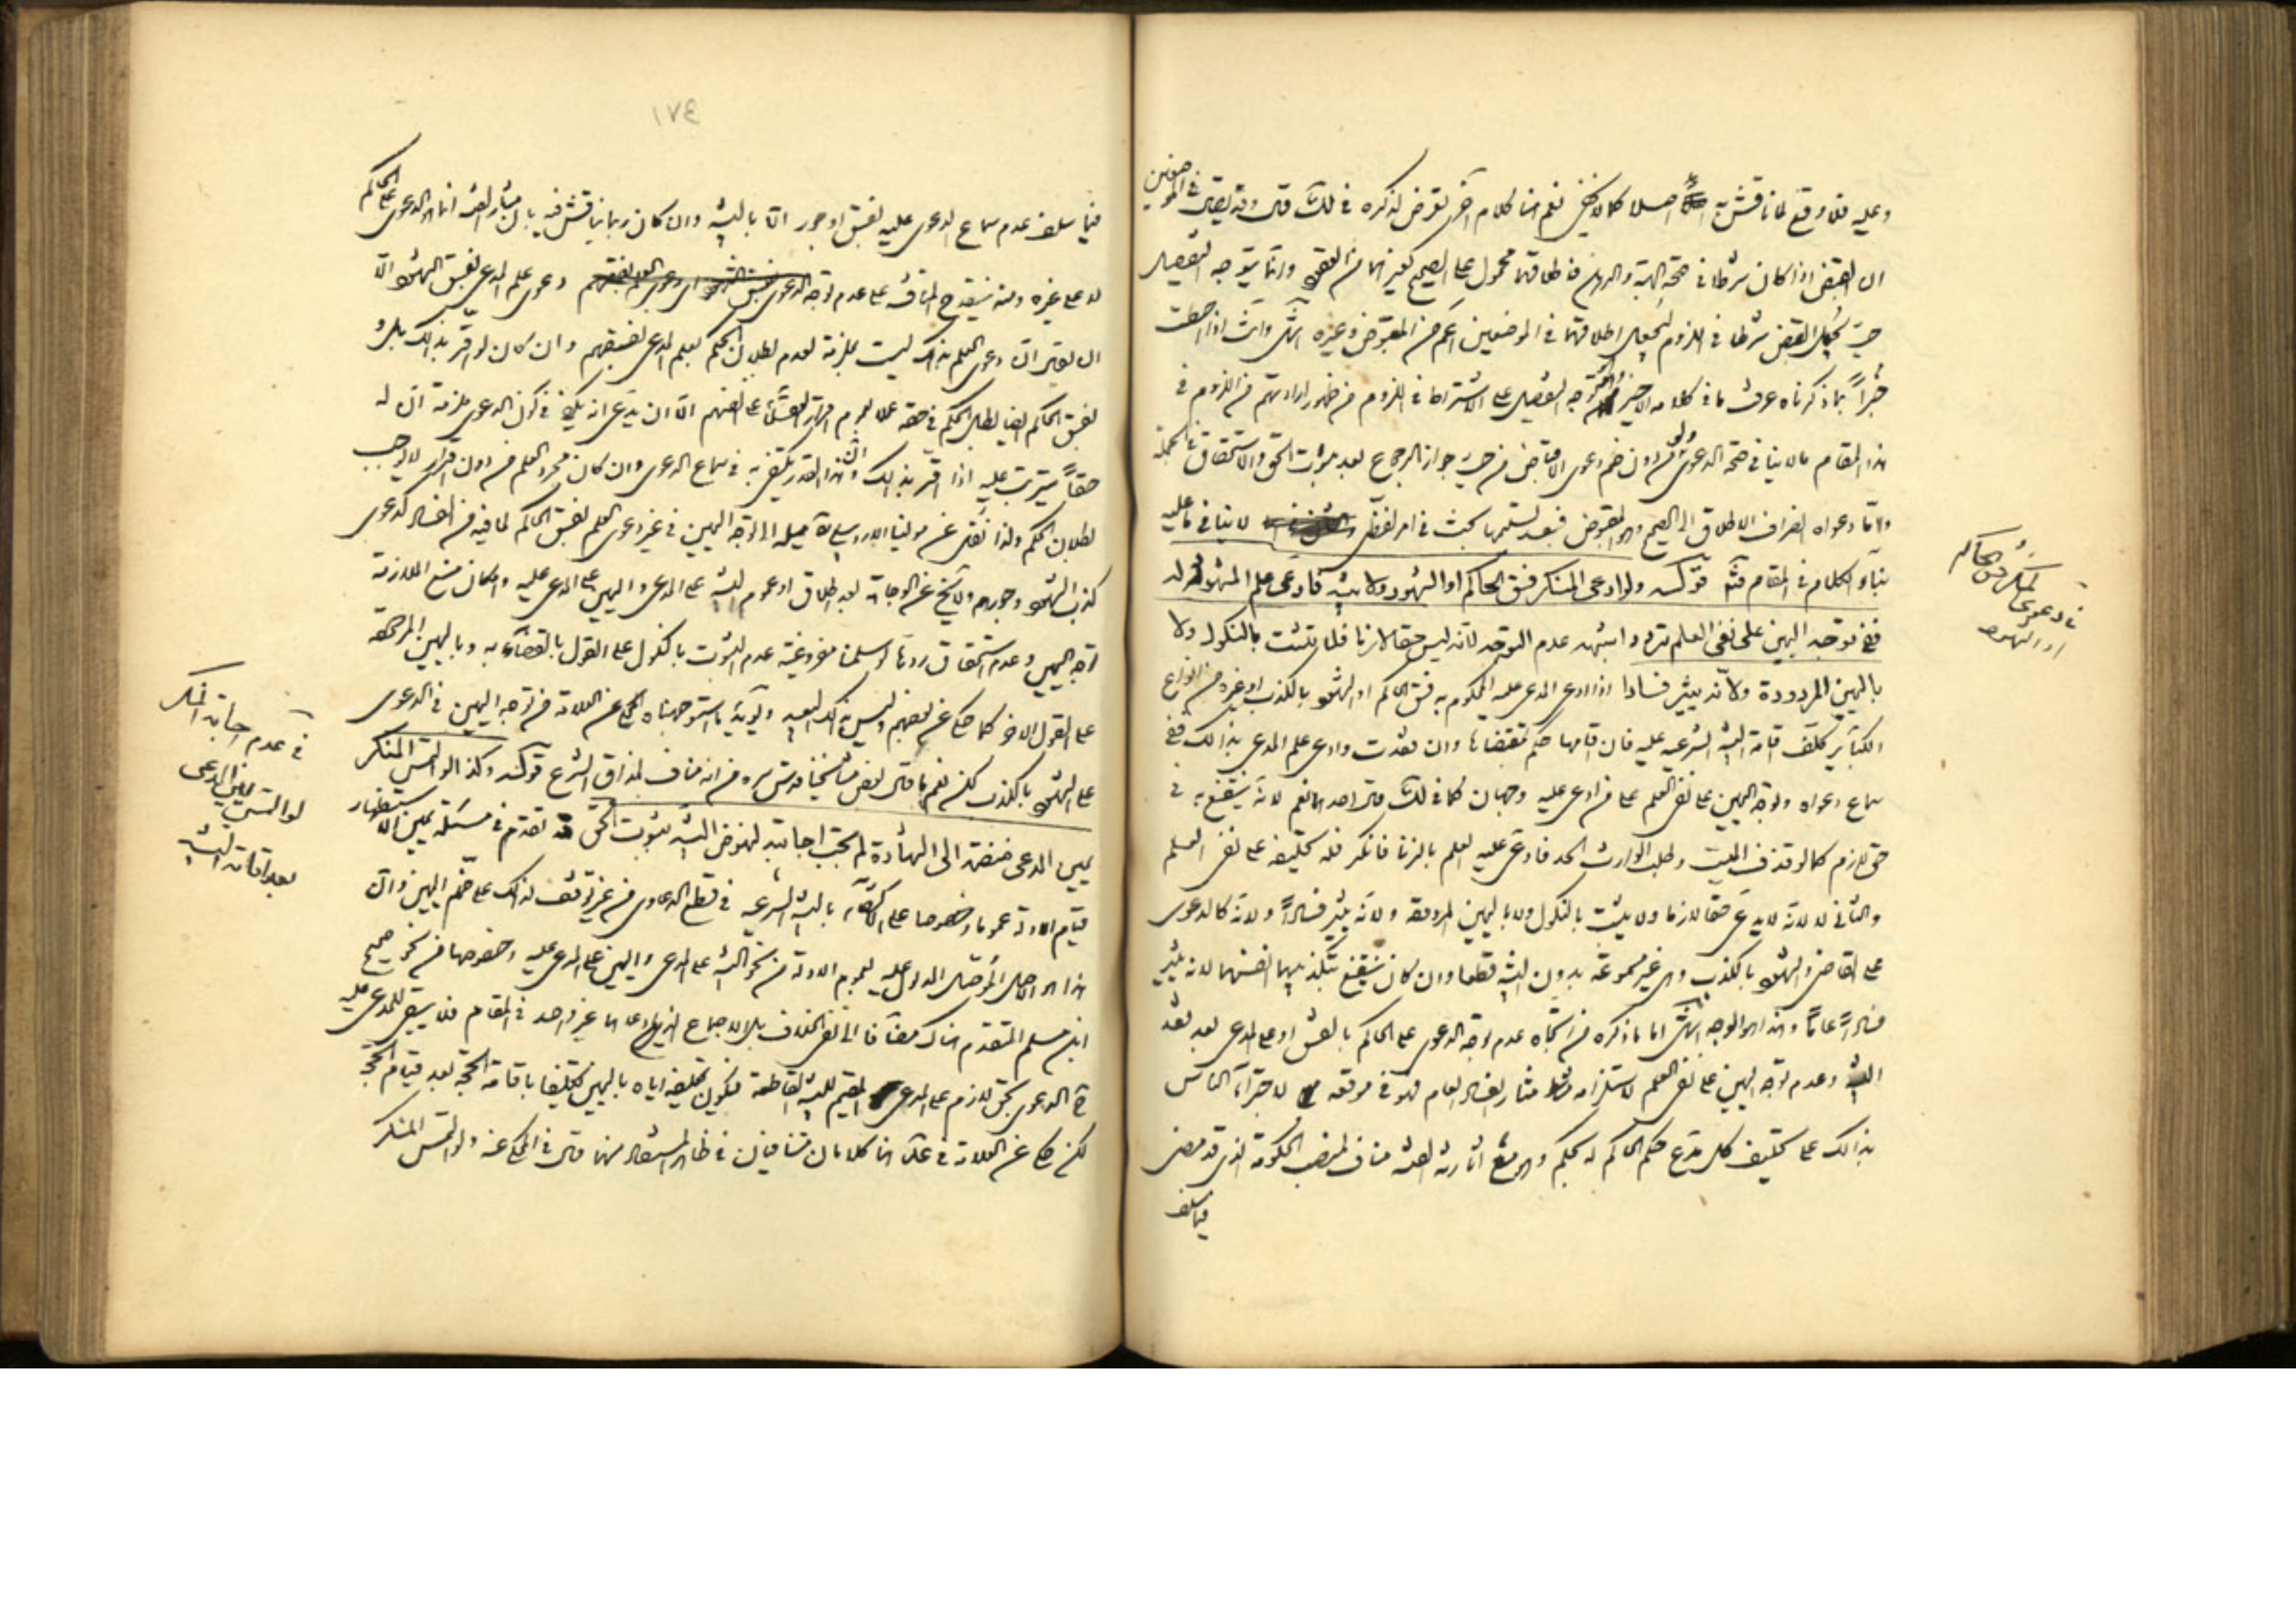 وعليه فلا وقع لمناقشته اصلا كما لا يخفى نعم هنا كلام آخر تعرض لذكره في لك قال وقد يقال في الموضعين
ان القبض اذا كان شرطا في صحة الهبة والرهن فاطلاقهما محمول على الصحيح كغيرهما من العقود وانما يتوجه التفصيل
حيث يجعل القبض شرطا في اللزوم ليجعل اطلاقهما في الموضعين اعم من المقبوض وغيره انتهى وانت اذا احطت
خبراً بما ذكرناه عرفت ما في كلامه الاخير توجه التفصيل على الاشتراط في اللزوم من ظهور ارادتهم من اللزوم في
هذا المقام ما لا ينافي صحة الدعوى ولو من دون ضم دعوى الاقباض من حيث جواز الرجوع بعد ثبوت الحق والاستحقاق في الجملة
واما دعواه انصراف الاطلاق الى الصحيح وهو المقبوض فبعد تسليمها بحث في امر لفظى لا ينافي ما عليه
بناء الكلام في المقام فتأمل قوله ولو ادعى المنكر فسق الحاكم او الشهود ولا بينة فادعى علم المشهود له
ففي توجه اليمين على نفي العلم تردد اشبهه عدم التوجه لانه ليس حقا لازما فلا يثبت بالنكول ولا
باليمين المردودة ولانه يثير فسادا اذا ادعى المدعى عليه المحكوم به فسق الحاكم او الشهود بالكذب او غيره من انواع
الكبائر كلف اقامة البينة الشرعية عليه فان اقامها حكم بمقتضاها وان تعذرت وادعى علم المدعي بذلك ففي
سماع دعواه وتوجه اليمين على نفي العلم على من ادعى عليه وجهان كما في لك قال احدهما نعم لانه ينتفع به في
حق لازم كما لو قذف الميت وطلب الوارث الحد فادعى عليه العلم بالزنا فانكر فله تحليفه على نفي العلم
والثاني لا لانه لا يدعي حقا لازما ولا يثبت بالنكول ولا باليمين المردودة ولانه يثير فساداً ولانه كالدعوى
على القاضي والشهود بالكذب وهي غير مسموعة بدون البينة قطعا وان كان ينتفع بتكذيبهما انفسهما لانه يثير
فساداً عاماً وهذا هو الوجه انتهى اما ما ذكره من اتجاه عدم توجه الدعوى على الحاكم بالفسق او على المدعي بعد فقد
البينة وعدم توجه اليمين على نفي العلم لاستلزامه مثار الفساد العام فهو في موقعه لاجتراء الناس
بذلك على تكليف كل مدع حكم الحاكم له بحكم وهو مع اثارته الفساد مناف لمنصب الحكومة الذي قد مضى
فيما سلف
في دعوى المنكر فسق الحاكم
او الشهود
١٧٤
فيما سلف عدم سماع الدعوى عليه بفسق او جور الا بالبينة وان كان ربما يناقش فيه بان مثار الفساد انما هو الدعوى على الحاكم
لا على غيره ومنه ينقدح المناقشة على عدم توجه دعوى علم المدعي بفسق الشهود الا
ان يقال ان دعوى العلم بذلك ليست بملزمة لعدم بطلان الحكم بعلم المدعي بفسقهم وان كان لو اقر بذلك بل و
بفسق الحاكم ايضا لبطل الحكم في حقه عملا بعموم اقرار العقلاء على انفسهم الا ان يدعى انه يكفي في كون الدعوى ملزمة ان له
حقاً يترتب عليه اذا اقر بذلك وان هذا القدر يكتفى به في سماع الدعوى وان كان مجرد العلم من دون اقرار لا يوجب
بطلان الحكم ولذا نقل عن مولينا الاردبيلي ره ميله الى توجه اليمين في غير دعوى العلم بفسق الحاكم لما فيه من الفساد كدعوى
كذب الشهود وجورهم ولا يخ عن الوجاهة بعد اطلاق او عموم البينة على المدعي واليمين على المدعى عليه وامكان منع الملازمة
توجه اليمين وعدم استحقاق ردها لو سلمنا مفروغية عدم الثبوت بالنكول على القول بالقضاء به وباليمين المردودة
على القول الاخر كما حكي عن بعضهم وليس بذلك البعيد ويؤيد ما استوجهناه المحكي عن العلامة من توجه اليمين في الدعوى
على الشهود بالكذب لكن نعم ما قال بعض مشايخنا قدس سره من انه مناف لمذاق الشرع قوله وكذا لو التمس المنكر
يمين المدعي منضمة الى الشهادة لم تجب اجابته لنهوض البينة بثبوت الحق قد تقدم في مسئلة يمين الاستظهار
قيام الادلة عموما وخصوصا على الاكتفاء بالبينة الشرعية في قطع الدعاوى من غير توقف لذلك على ضم اليمين وان
هذا هو الاصل المؤصل المدلول عليه لعموم الادلة من نحو البينة على المدعي واليمين على المدعى عليه وخصوصها من نحو صحيح
ابن مسلم المتقدم هناك مضافا الى نفي الخلاف بل الاجماع الذي ادعاهما غير واحد في المقام فلا يبقى للمدعى عليه
ح الدعوى بحق لازم على المدعي المقيم للبينة القاطعة فيكون تحليفه اياه باليمين تكليفا باقامة الحجة بعد قيام الحجة
لكن حكي عن العلامة في عد هنا كلامان متنافيان في ظاهر المستفاد منهما قال في المحكي عنه ولو التمس المنكر
في عدم اجابة المنكر
لو التمس يمين المدعي
بعد اقامة البينة